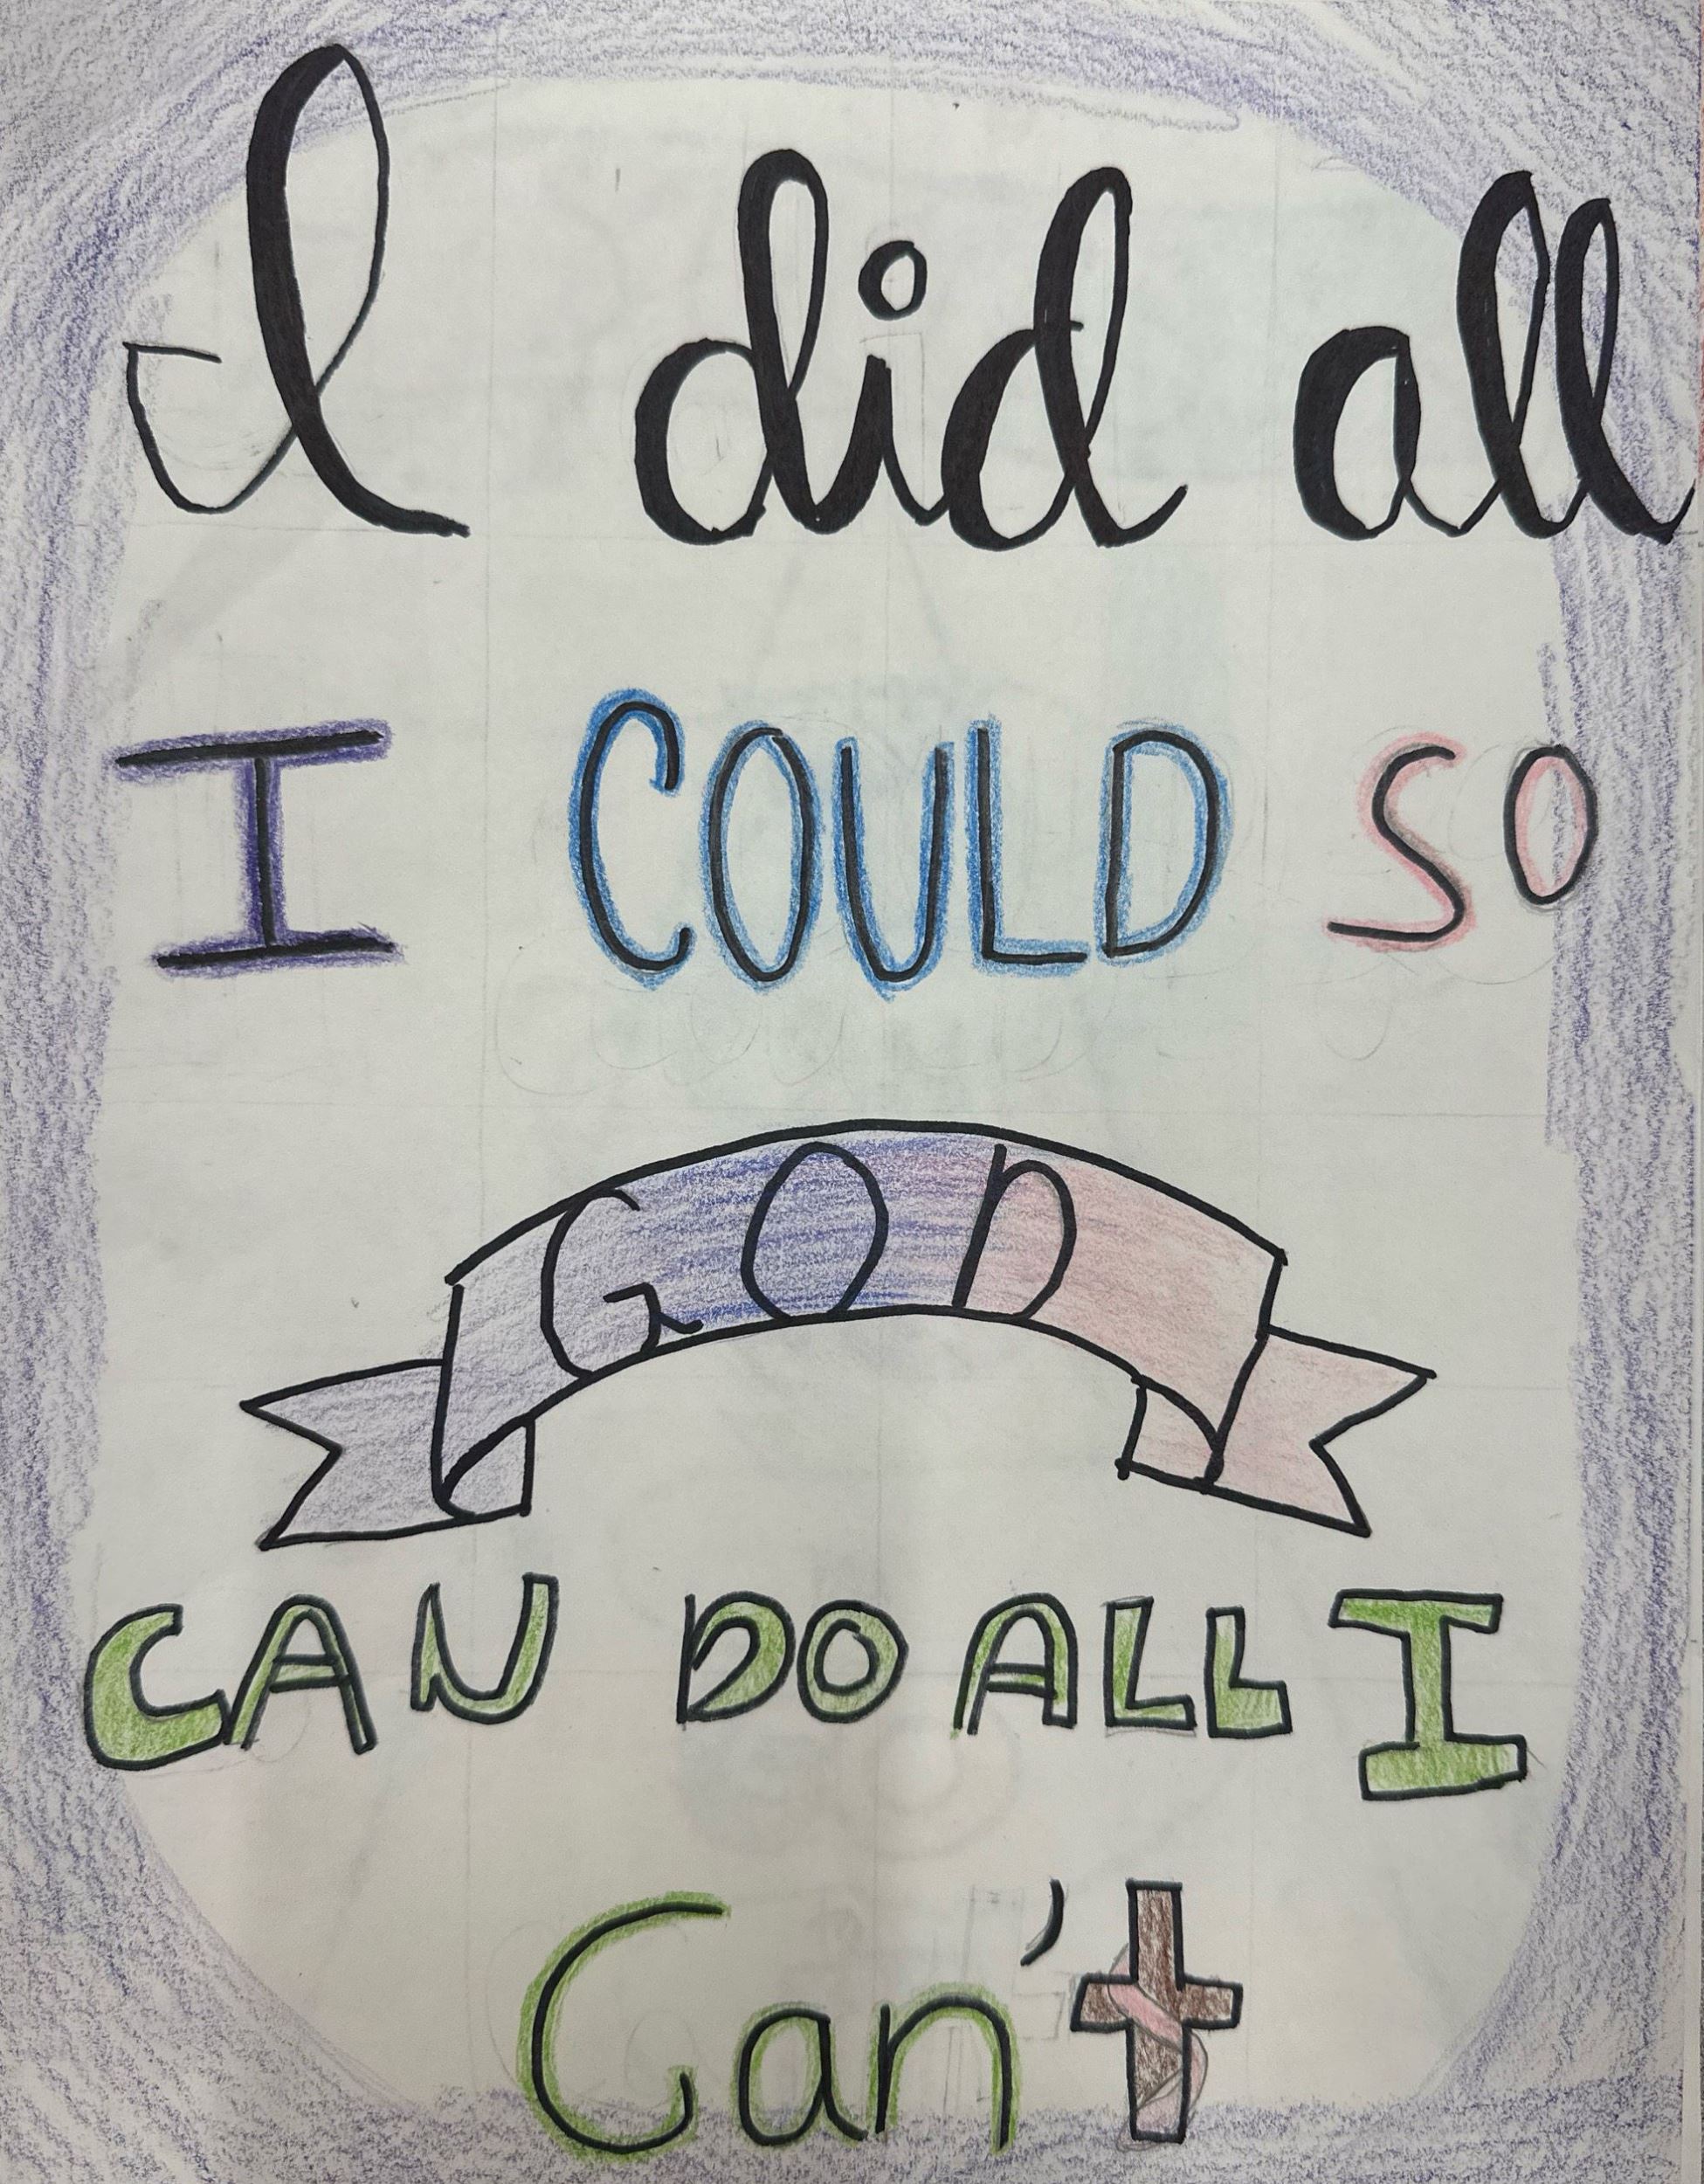 I did all
I COULD SO
GOD
CAN DO ALL I
Can't